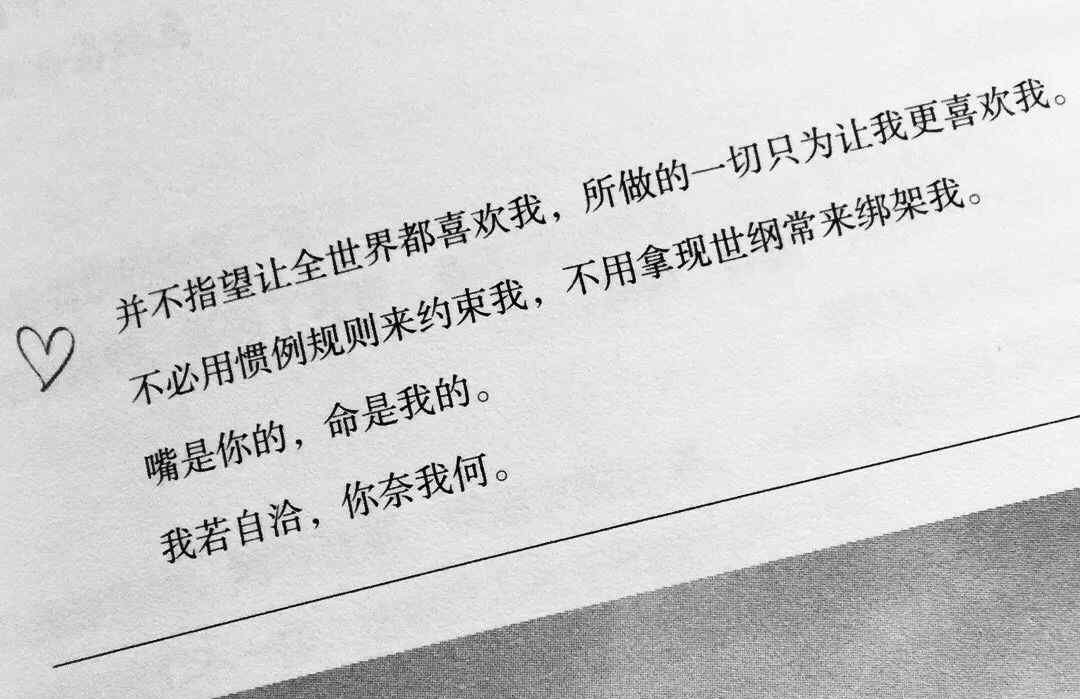 并不指望让全世界都喜欢我，所做的一切只为让我更喜欢我。
不必用惯例规则来约束我，不用拿现世纲常来绑架我。
嘴是你的，命是我的。
我若自洽，你奈我何。